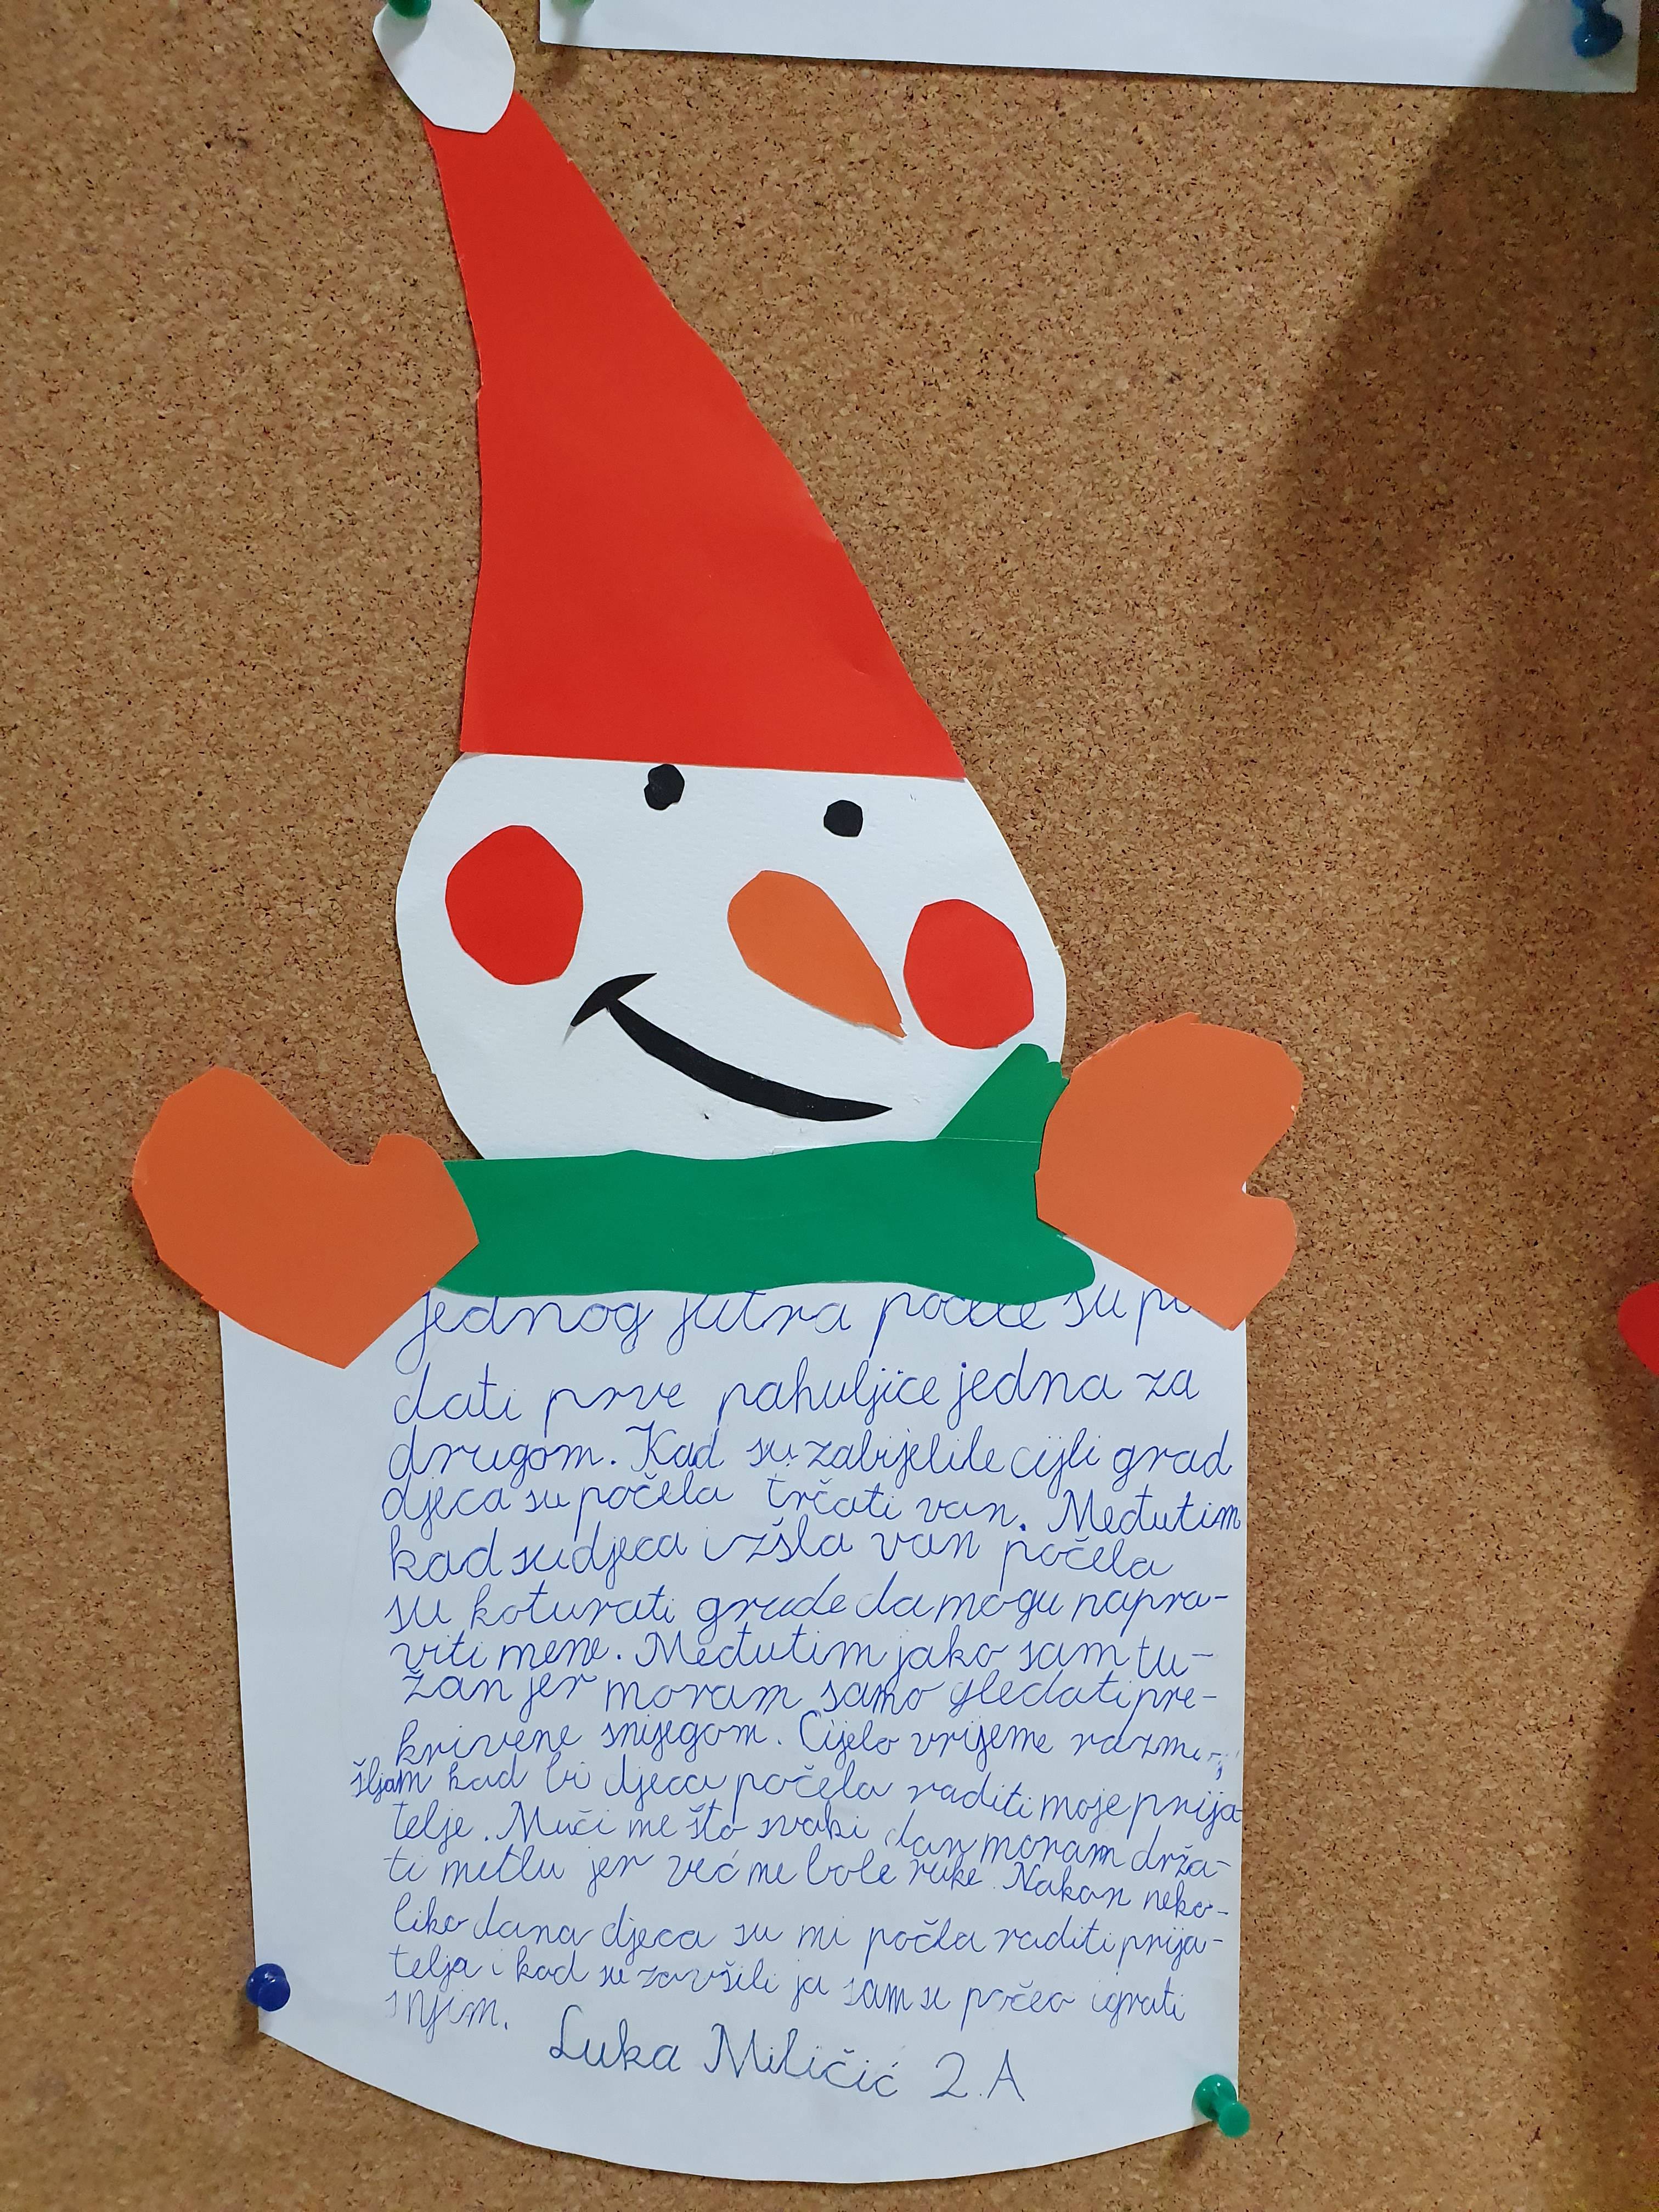 Jednog jutra počele su pa
dati prve pahuljice jedna za
drugom. Kad su zabijelile cijli grad
djeca su počela trčati van. Međutim
kad su djeca izšla van počela
su koturati grude da mogu napra-
viti mene. Međutim jako sam tu-
žan jer moram samo gledati pre-
krivene snijegom. Cijelo vrijeme razmi-
šljam kad bi djeca počela raditi moje prija
telje. Muči me što svaki dan moram drža-
ti metlu jer već me bole ruke. Nakon neko-
liko dana djeca su mi počla raditi prija-
telja i kad su završili ja sam se počeo igrati
s njim.
Luka Miličić 2.A